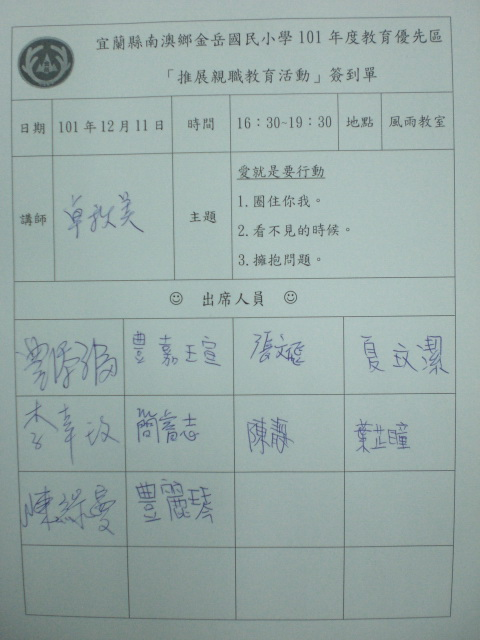 宜蘭縣南澳鄉金岳國民小學 101 年度教育優先區
「推展親職教育活動」簽到單
日期 101 年 12 月 11 日 時間 16：30~19：30 地點 風雨教室
講師 卓秋美 主題
愛就是要行動
1.圈住你我。
2.看不見的時候。
3.擁抱問題。
☺ 出席人員 ☺
豐嘉玉宣 夏玟潔
簡育志 陳靜 葉芷瞳
豐麗琴